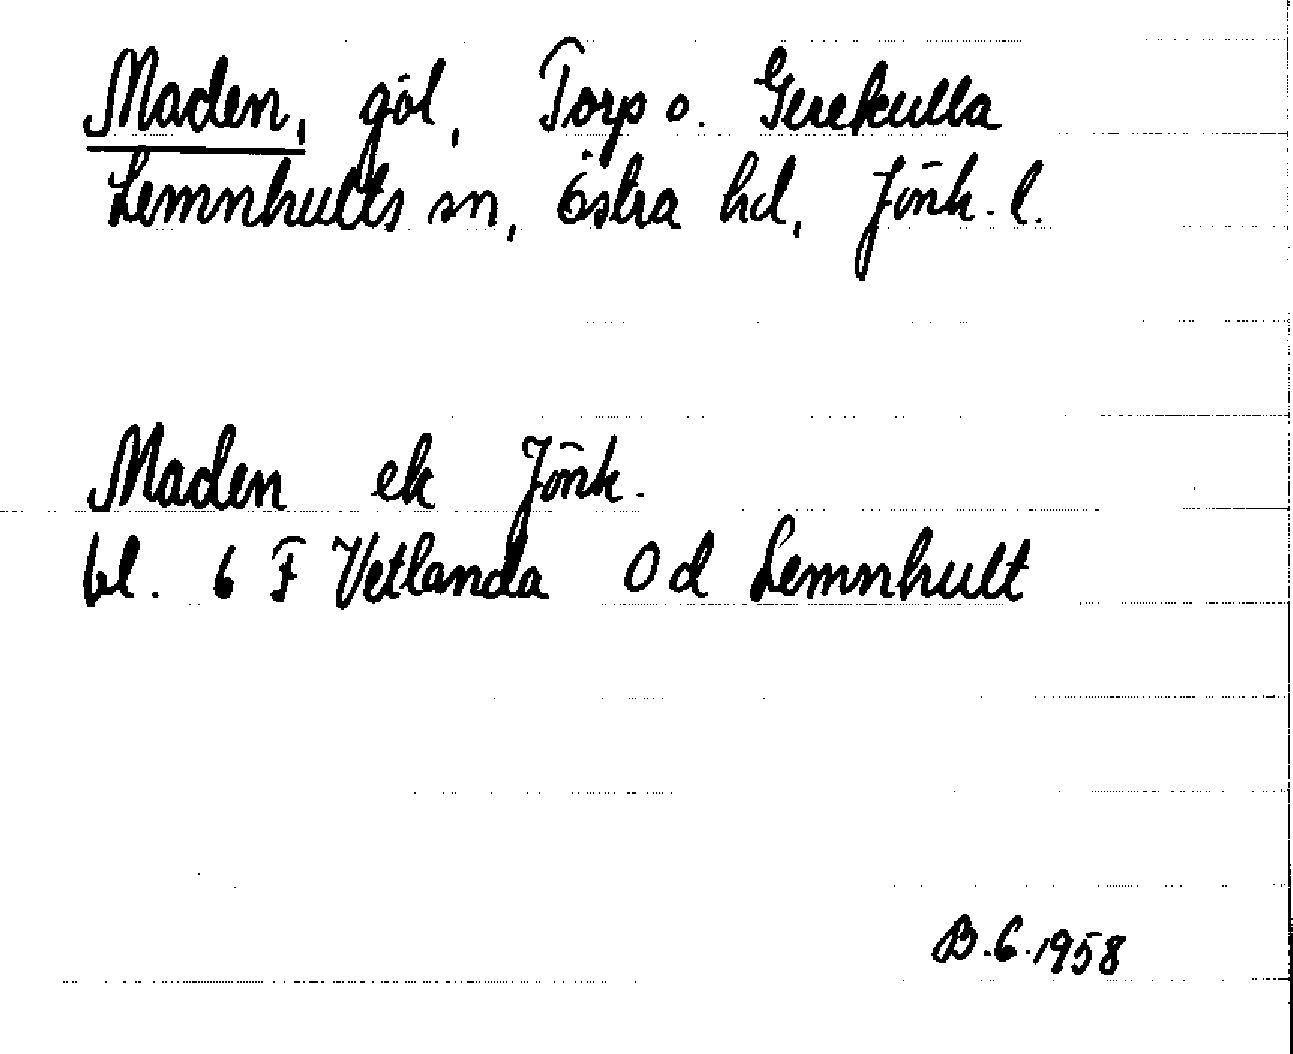 Maden, göl, Torp o. Gerekulla
Lemnhults sn, Östra hd, Jönk. l.
Maden ek Jönk.
bl. 6 F Vetlanda 0 d Lemnhult
B.G. 1958